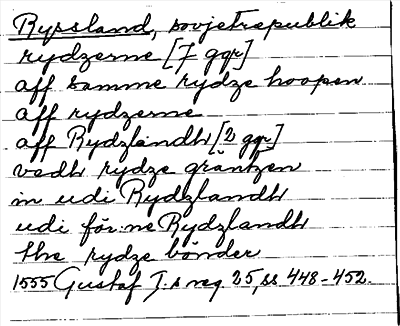 Ryssland, sovjetrepublik
rydzerne [7 ggr]
aff samme rydze hoopen
aff rydzerne
aff Rydzlandh [2 ggr]
vedh rydze gräntzen
in udi Rydzlandh
udi för:ne Rydzlandh
the rydze bönder
1555 Gustaf I:s reg 25, ss 448-452.